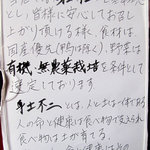 とし、皆様に安心してお召し
上がり頂ける様、食材は、
国産優先(鴨は除く)、野菜は
有機・無農薬栽培を条件として
選定しております
身土不二とは、人と土は一体である
人の命と健康は食べ物で支えられ
食べ物は土が育てる。